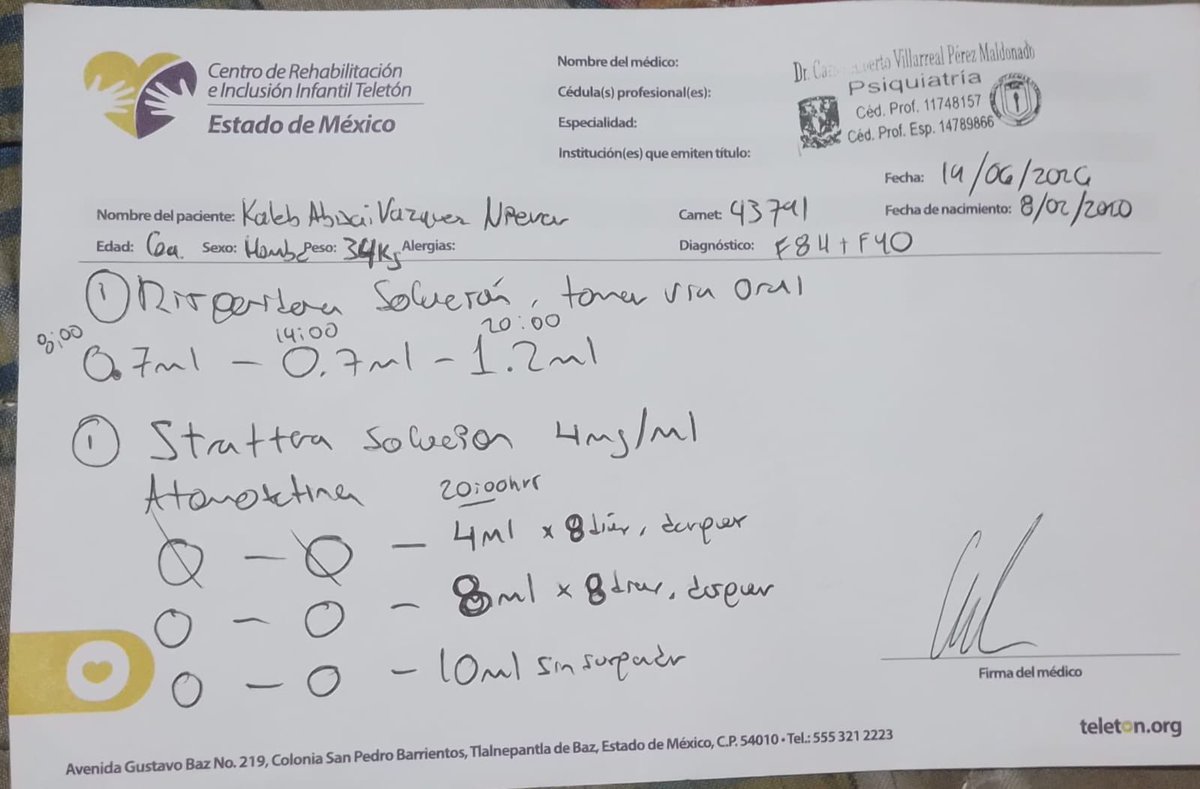 Centro de Rehabilitación
e Inclusión Infantil Teletón
Estado de México
Nombre del médico:
Cédula(s) profesional(es):
Especialidad:
Institución(es) que emiten título:
Dr. Villarreal Pérez Maldonado
Psiquiatría
Céd. Prof. 11748157
Céd. Prof. Esp. 14789866
Fecha: 14/06/2026
Nombre del paciente: Kaleb Vazquez Carnet: 43791 Fecha de nacimiento: 8/02/2020
Edad: 6a. Sexo: Hombre Peso: 34Kg Alergias: Diagnóstico: F84 + F90
① Risperidona Solución, tomar vía oral
8:00 14:00 20:00
0.7ml - 0.7ml - 1.2ml
① Strattera solución 4mg/ml
Atomoxetina 20:00hrs
0 - 0 - 4ml x 8 días, después
0 - 0 - 8ml x 8 días, después
0 - 0 - 10ml sin suspender
Firma del médico
teleton.org
Avenida Gustavo Baz No. 219, Colonia San Pedro Barrientos, Tlalnepantla de Baz, Estado de México, C.P. 54010 • Tel.: 555 321 2223